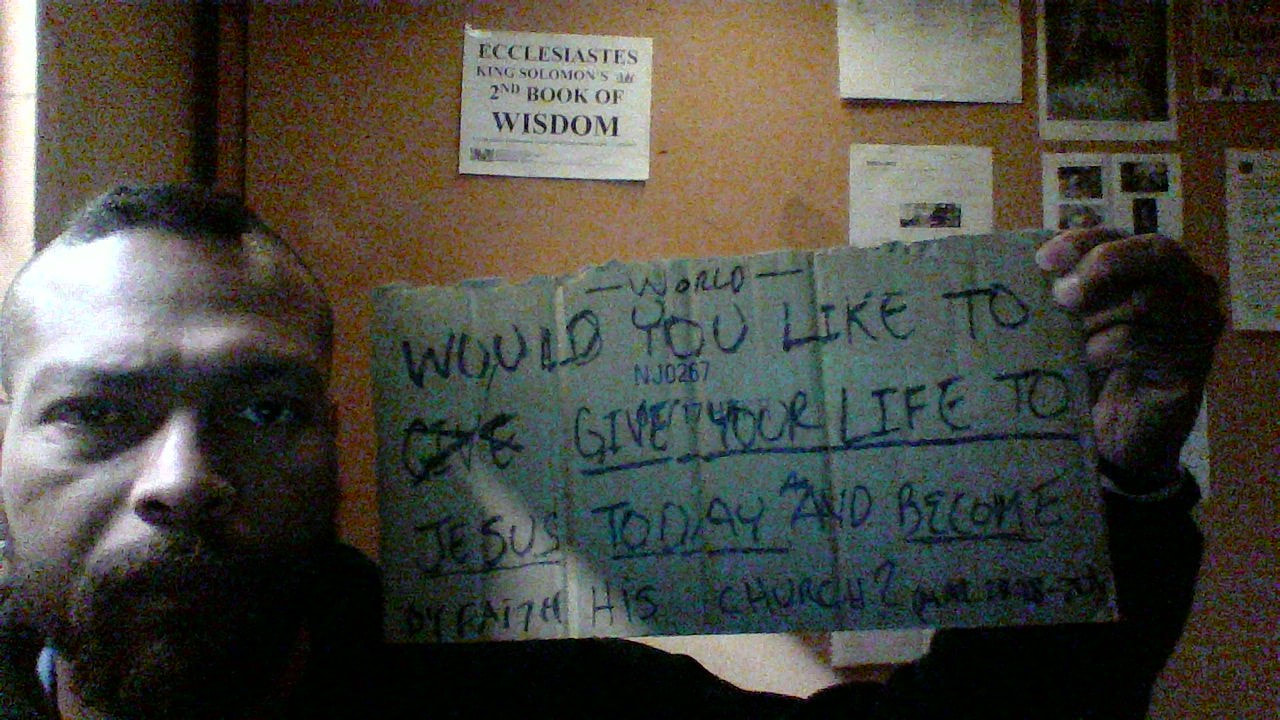 ECCLESIASTES
KING SOLOMON'S
2ND BOOK OF
WISDOM
— WORLD —
WOULD YOU LIKE TO
NJ0267
GIVE GIVE YOUR LIFE TO
JESUS TODAY AND BECOME
BY FAITH HIS CHURCH?